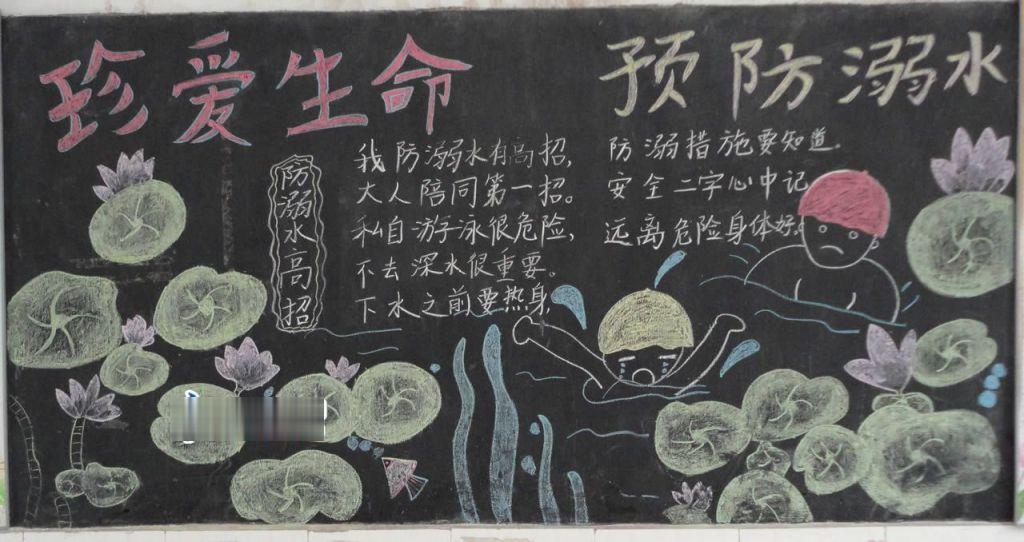 珍爱生命
预防溺水
防溺水高招
我防溺水有高招,
大人陪同第一招。
私自游泳很危险,
不去深水很重要。
下水之前要热身,
防溺措施要知道.
安全二字心中记
远离危险身体好。